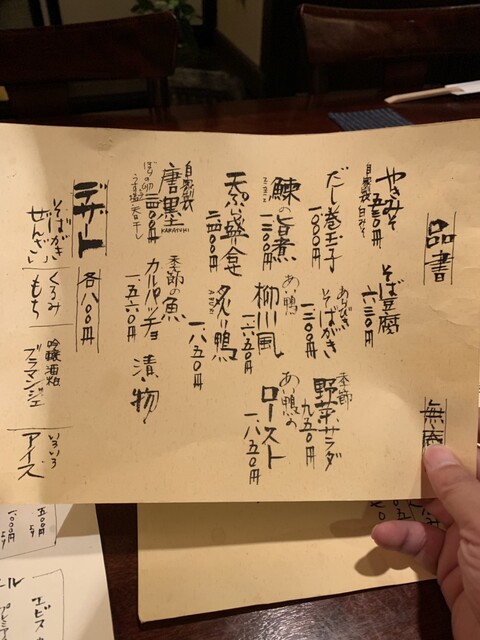 品書
無庵
やきみそ
自家製白みそ
五五〇円
そば豆腐
六三〇円
だし巻玉子
一、〇〇〇円
あらびき
そばがき
一、三〇〇円
季節
野菜サラダ
九五〇円
鰊の旨煮
NISIN
一、三〇〇円
あい鴨
柳川風
一、六五〇円
あい鴨の
ロースト
一、八五〇円
天ぷら盛合
二、四〇〇円
炙り鴨
一、八五〇円
自家製
唐墨
KARASUMI
ぼらの卵
うす塩天日干し
季節の魚
カルパッチョ
一、五六〇円
漬物
デザート
各八〇〇円
そばがき
ぜんざい
くるみ
もち
吟醸酒粕
ブラマンジェ
いろいろ
アイス
五〇〇円
より
一、〇〇〇円
より
エビス